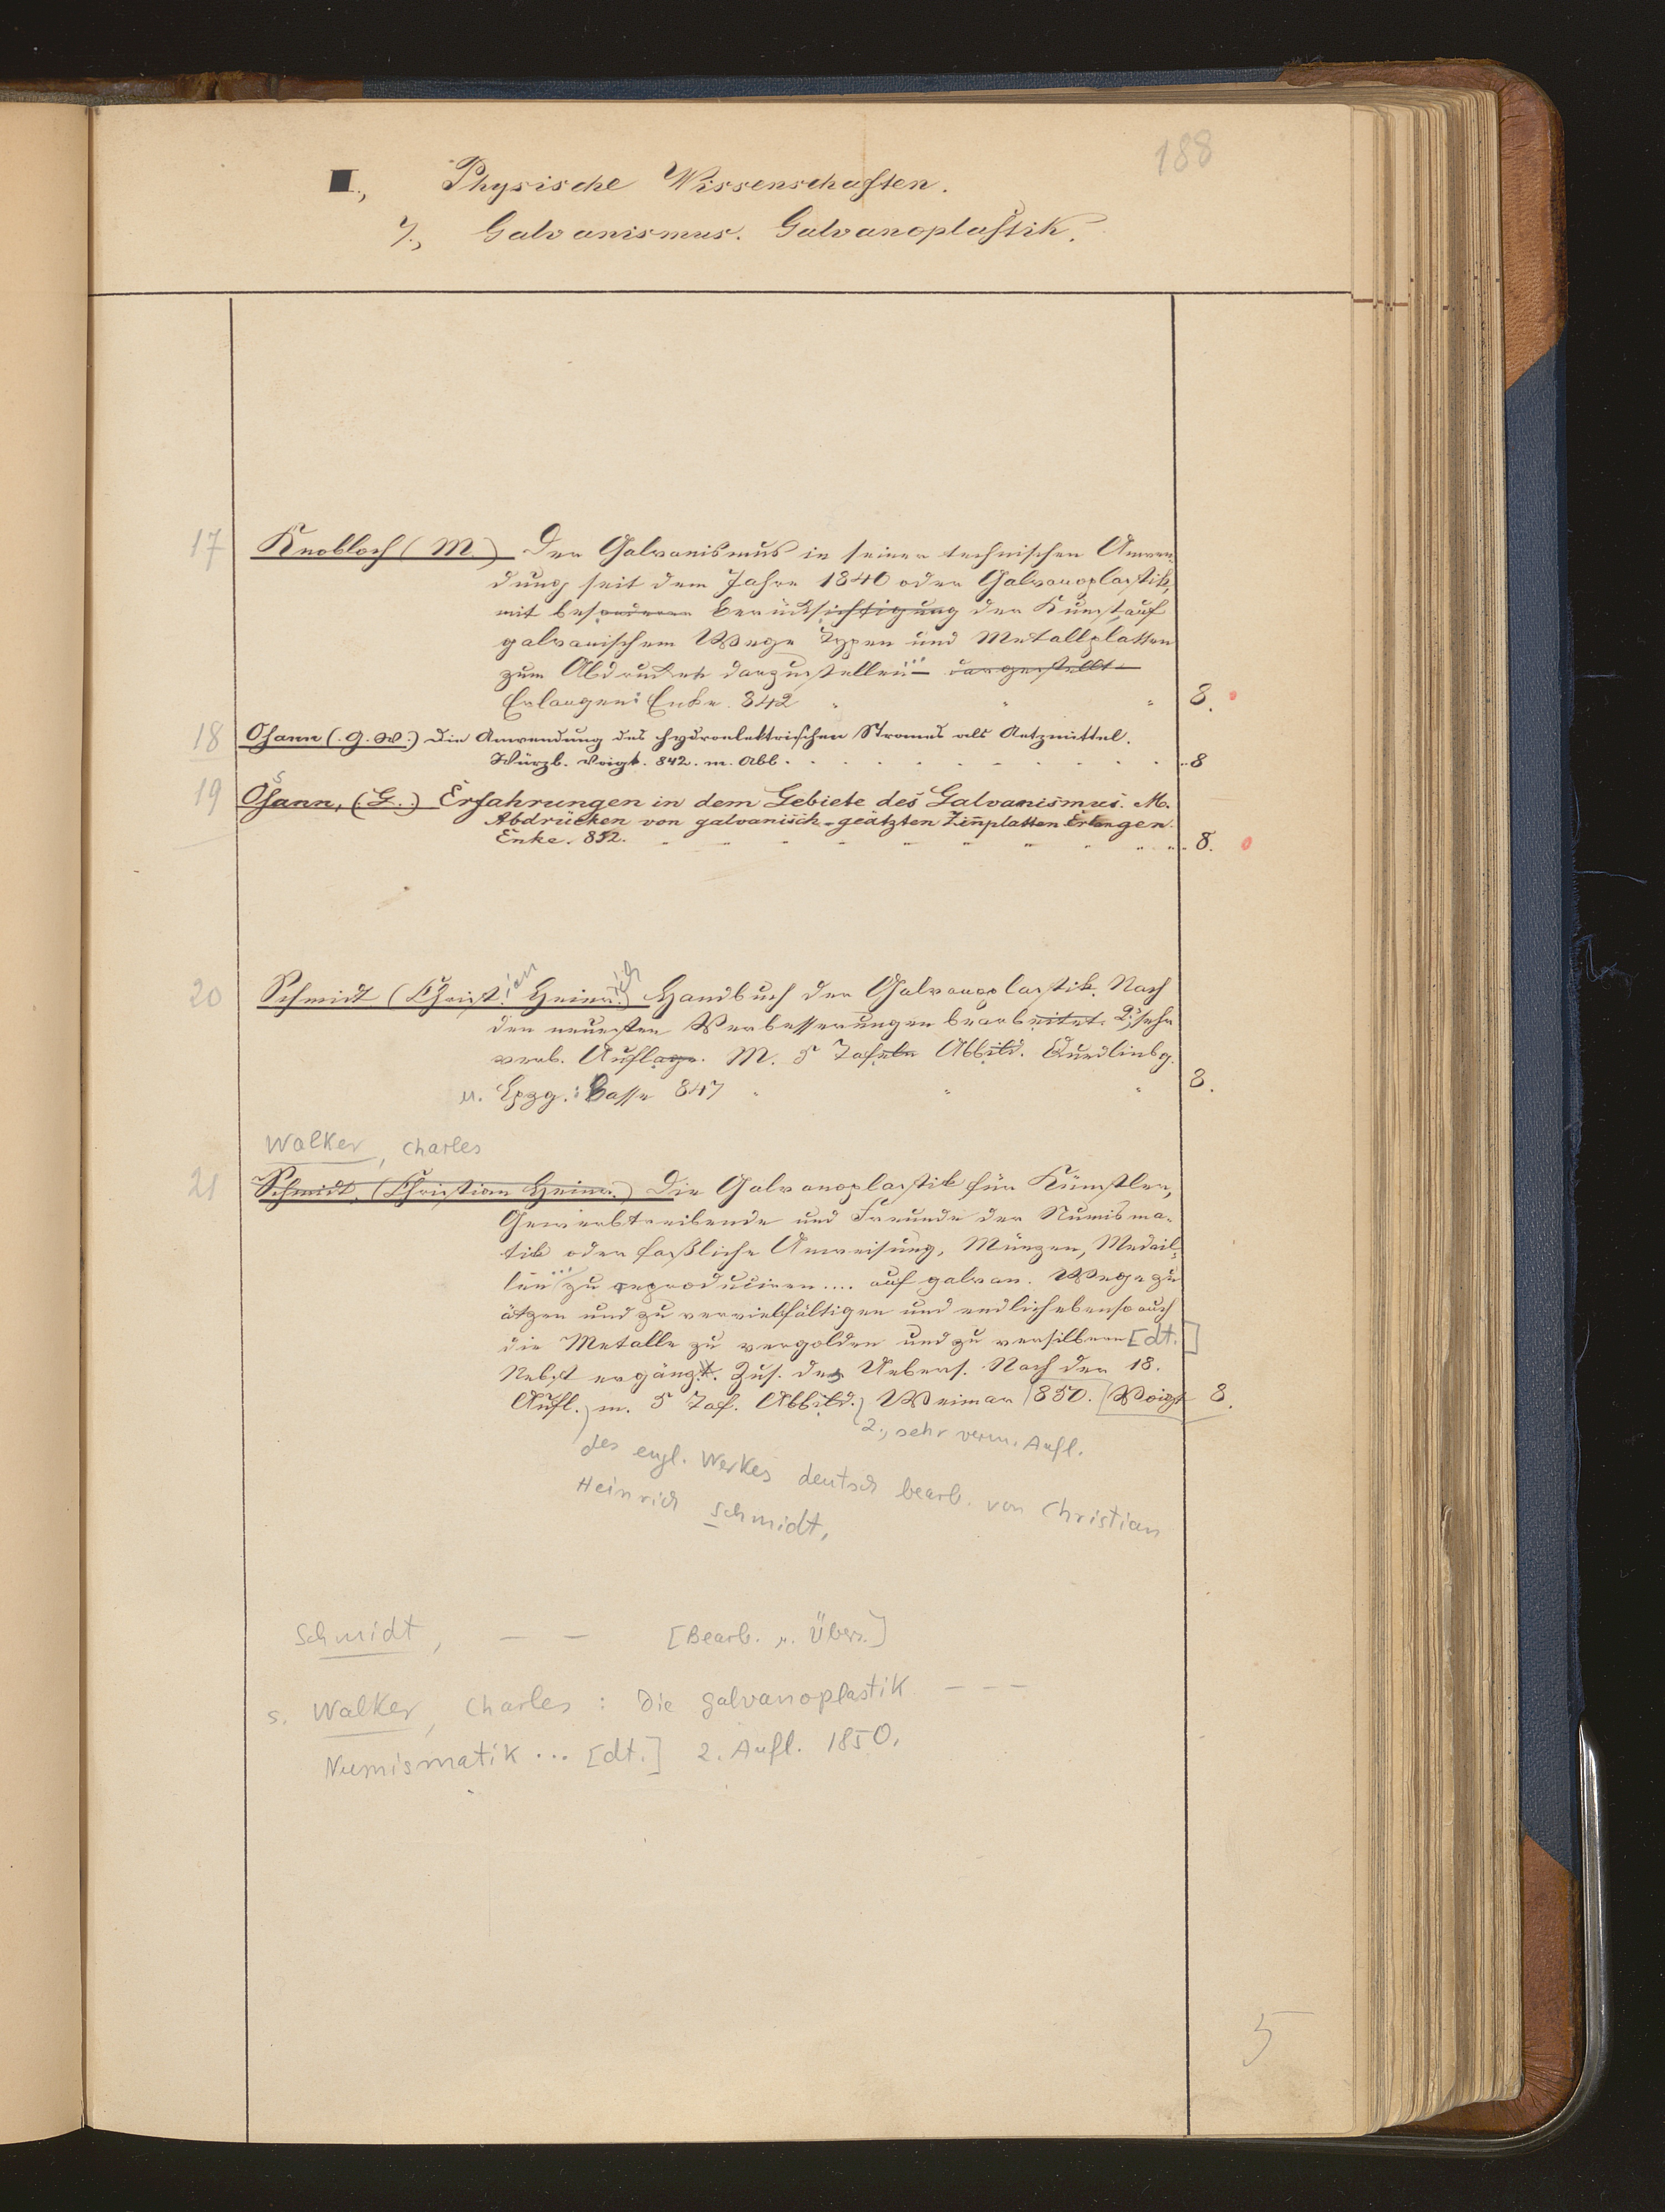 188
II., Physische Wissenschaften.
7., Galvanismus. Galvanoplastik.
17 Knobloch (M.) Der Galvanismus in seiner technischen Anwen-
dung seit dem Jahre 1840 oder Galvanoplastik,
mit besonderer Berücksichtigung der Kunst, auf
galvanischem Wege Typen und Metallplatten
zum Abdrucken darzustellen... dargestellt
Erlangen: Enke. 842 " " " 8.
18 Osann (G. W.) Die Anwendung des hydroelektrischen Stromes als Aetzmittel.
Würzb. Voigt. 842. m. Abb. 8
19 Osann, (G.) Erfahrungen in dem Gebiete des Galvanismus. M.
Abdrücken von galvanisch-geätzten Zinplatten Erlangen.
Enke. 852. 8.
20 Schmidt (Christ.ian Heinr.ich) Handbuch der Galvanoplastik. Nach
den neuesten Verbesserungen bearbeitet. 2., sehr
verb. Auflage. M. 5 Tafeln Abbild. Quedlinbg.
u. Lpzg.: Basse 847 " " " 8.
Walker, Charles
21 Schmidt, (Christian Heinr.) Die Galvanoplastik für Künstler,
Gewerbtreibende und Freunde der Numisma-
tik oder faßliche Anweisung, Münzen, Medail-
len... zu reproduciren.... auf galvan. Wege zu
ätzen und zu vervielfältigen und endlich ebenso auch
die Metalle zu vergolden und zu versilbern [dt.]
Nebst ergänzt. Zus. des Uebers. Nach der 18.
Aufl. m. 5 Taf. Abbild. Weimar 850. Voigt 8.
2., sehr verm. Aufl.
des engl. Werkes deutsch bearb. von Christian
Heinrich Schmidt,
Schmidt, — — [Bearb. u. Übers.]
s. Walker, Charles: Die Galvanoplastik - - -
Numismatik ... [dt.] 2. Aufl. 1850.
5